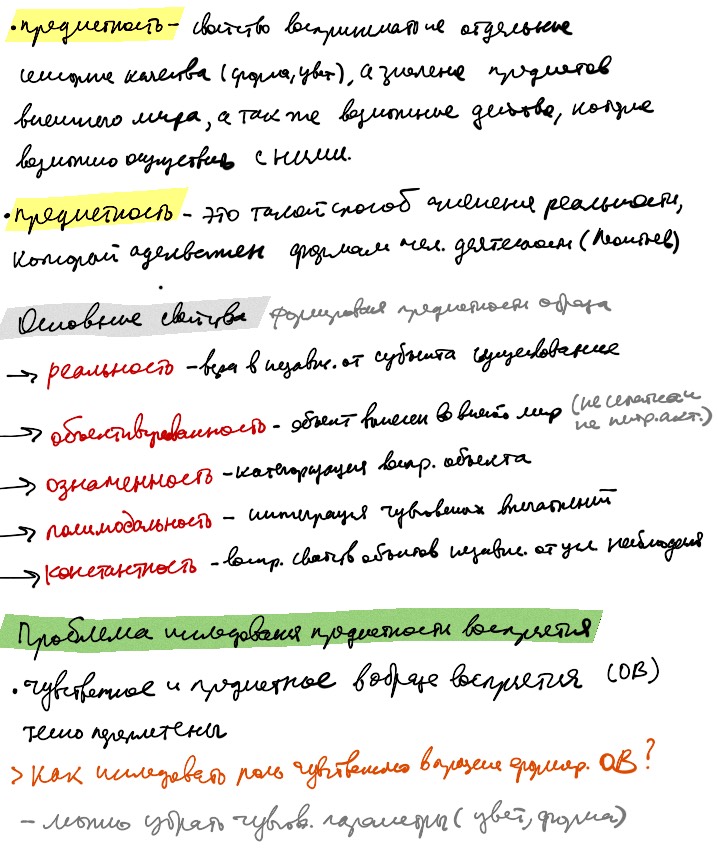 • предметность – свойство воспринимать не отдельные
сенсорные качества (форма, цвет), а значение предметов
внешнего мира, а так же возможные действа, которые
возможно осуществить с ними.
• предметность – это такой способ явления реальности,
который адекватен формам чел. деятельности (Леонтьев)
Основные свойства формирования предметности образа
→ реальность – вера в независ. от субъекта существование
→ объективированность – объект вынесен во внешн мир (не сетчатка и
не нейр. акт.)
→ означенность – категоризация воспр. объекта
→ полимодальность – интеграция чувственных впечатлений
→ константность – воспр. свойств объектов независ. от усл наблюдения
Проблема исследования предметности восприятия
• чувственное и предметное в образе восприятия (ОВ)
тесно переплетены
> Как исследовать роль чувственного в процессе формир. ОВ?
– можно убрать чувств. параметры (цвет, форма)